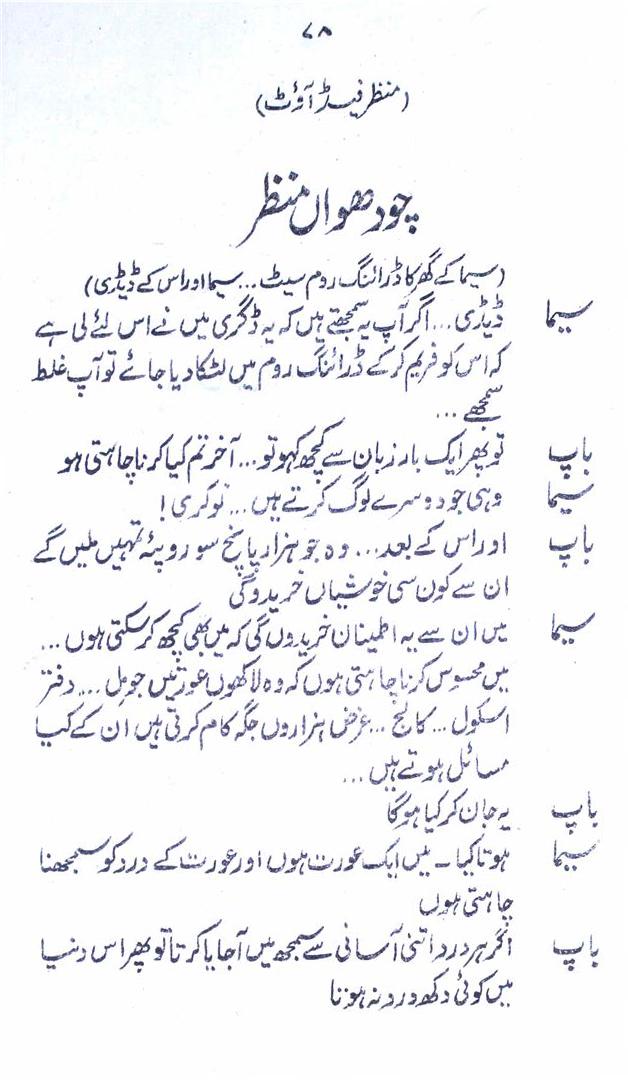 ۷۸
(منظر فیڈ آؤٹ)
چودھواں منظر
(سیما کے گھر کا ڈرائنگ روم سیٹ... سیما اور اس کے ڈیڈی)
سیما ڈیڈی... اگر آپ یہ سمجھتے ہیں کہ یہ ڈگری میں نے اس لئے لی ہے
کہ اس کو فریم کرکے ڈرائنگ روم میں لٹکا دیا جائے تو آپ غلط
سمجھے...
باپ تو پھر ایک بار زبان سے کچھ کہو تو... آخر تم کیا کرنا چاہتی ہو
سیما وہی جو دوسرے لوگ کرتے ہیں... نوکری!
باپ اور اس کے بعد... وہ جو ہزار پانچ سو روپئے تمہیں ملیں گے
ان سے کون سی خوشیاں خریدوگی
سیما میں ان سے یہ اطمینان خریدوں گی کہ میں بھی کچھ کر سکتی ہوں...
میں محسوس کرنا چاہتی ہوں کہ وہ لاکھوں عورتیں جو مل... دفتر
اسکول... کالج... غرض ہزاروں جگہ کام کرتی ہیں ان کے کیا
مسائل ہوتے ہیں...
باپ یہ جان کر کیا ہوگا
سیما ہوتا کیا ۔ میں ایک عورت ہوں اور عورت کے درد کو سمجھنا
چاہتی ہوں
باپ اگر ہر درد اتنی آسانی سے سمجھ میں آجایا کرتا تو پھر اس دنیا
میں کوئی دکھ درد نہ ہوتا